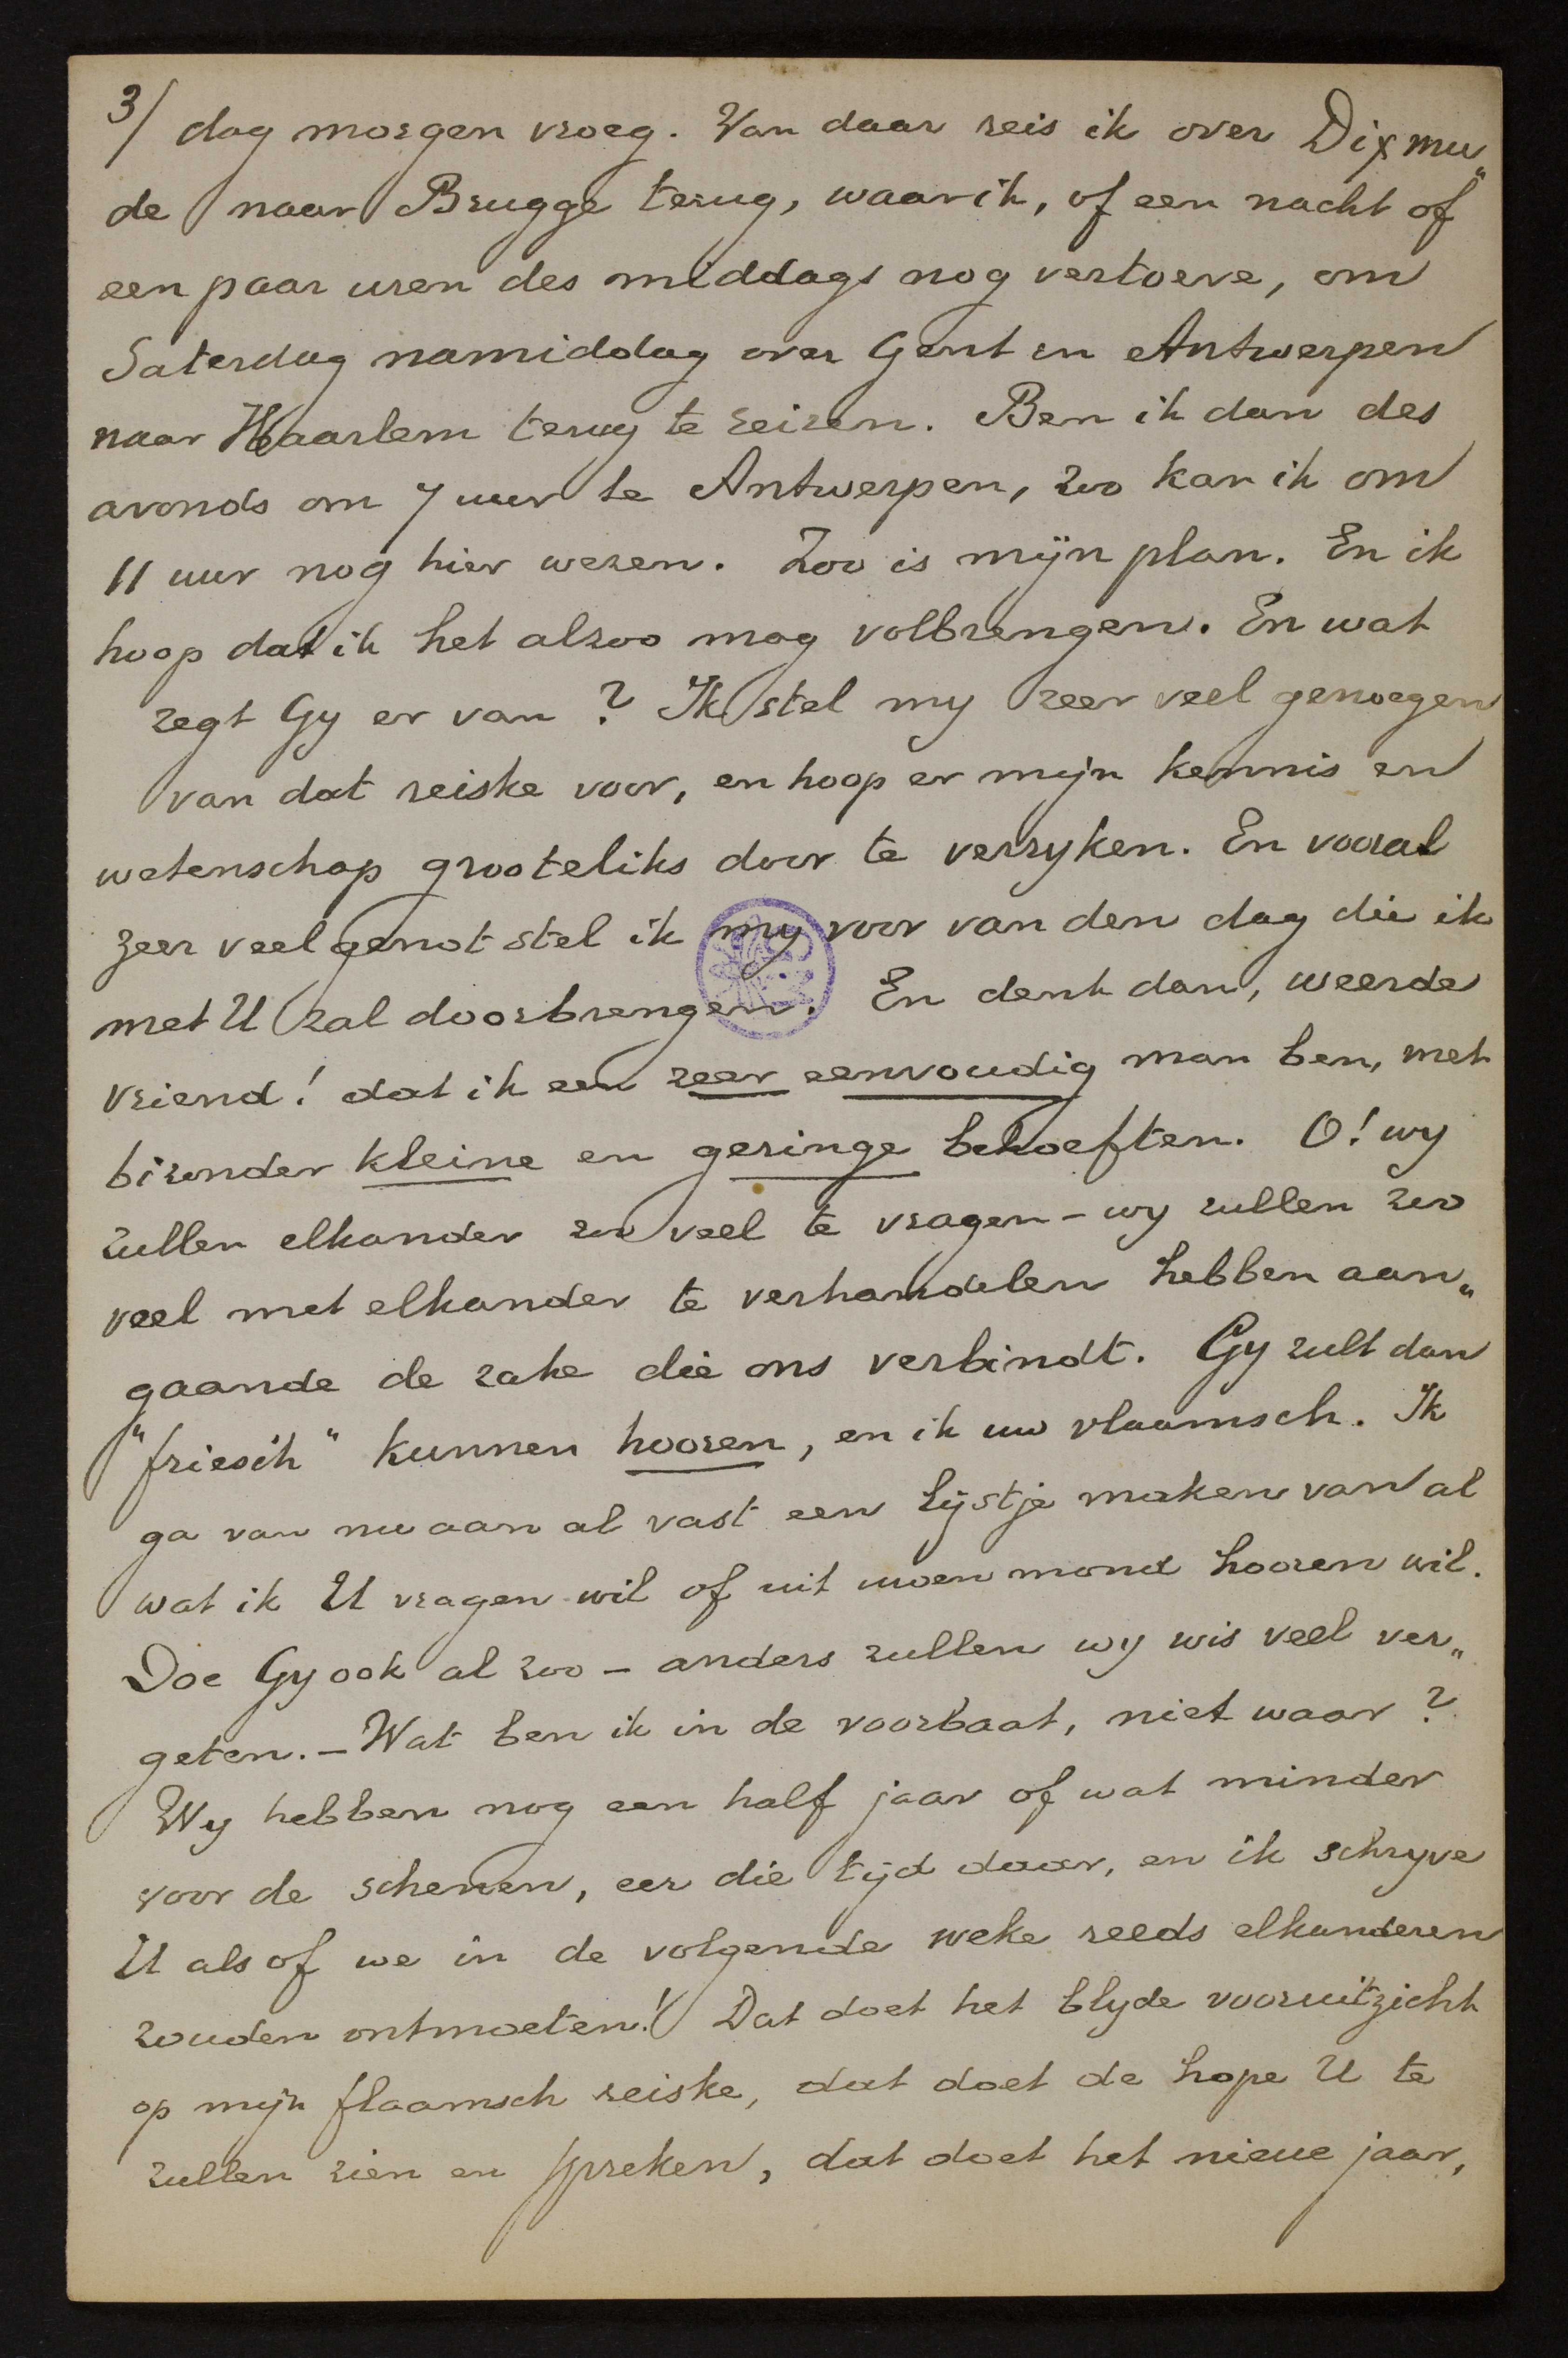 3/ dag morgen vroeg. Van daar reis ik over Dixmu„
de naar Brugge terug, waar ik, of een nacht of
een paar uren des middags nog vertoeve, om
Saterdag namiddag over Gent en Antwerpen
naar Haarlem terug te reizen. Ben ik dan des
avonds om 7 uur te Antwerpen, zoo kan ik om
11 uur nog hier wezen. Zoo is mijn plan. En ik
hoop dat ik het alzoo mag volbrengen. En wat
zegt Gy er van? Ik stel my zeer veel genoegen
van dat reiske voor, en hoop er mijn kennis en
wetenschap grooteliks door te verryken. En vooral
zeer veel genot stel ik my voor van den dag die ik
met U zal doorbrengen. En denk dan, weerde
vriend! dat ik een zeer eenvoudig man ben, met
bizonder kleine en geringe behoeften. O! wy
zullen elkander zoo veel te vragen - wy zullen zoo
veel met elkander te verhandelen hebben aan„
gaande de zake die ons verbindt. Gy zult dan
"friesch" kunnen hooren, en ik uw vlaamsch. Ik
ga van nu aan al vast een lijstje maken van al
wat ik U vragen wil of uit uwen mond hooren wil.
Doe Gy ook al zoo - anders zullen wy wis veel ver„
geten. - Wat ben ik in de voorbaat, niet waar?
Wy hebben nog een half jaar of wat minder
voor de schenen, eer die tijd daar, en ik schryve
U als of we in de volgende weke reeds elkanderen
zouden ontmoeten! Dat doet het blyde vooruitzicht
op mijn flaamsch reiske, dat doet de hope U te
zullen zien en spreken, dat doet het nieue jaar,